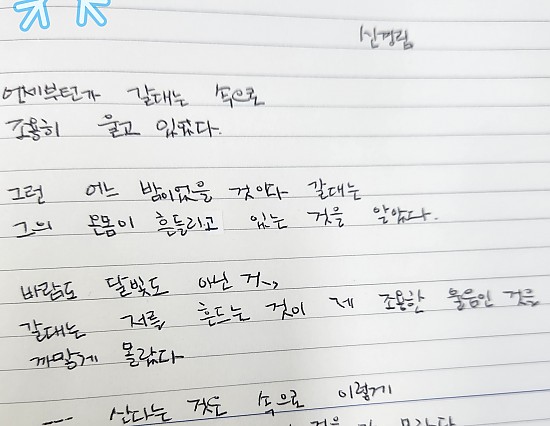 신경림
언제부턴가 갈대는 속으로
조용히 울고 있었다.
그런 어느 밤이었을 것이다 갈대는
그의 온몸이 흔들리고 있는 것을 알았다.
바람도 달빛도 아닌 것,
갈대는 저를 흔드는 것이 제 조용한 울음인 것을
까맣게 몰랐다
--- 산다는 것은 속으로 이렇게